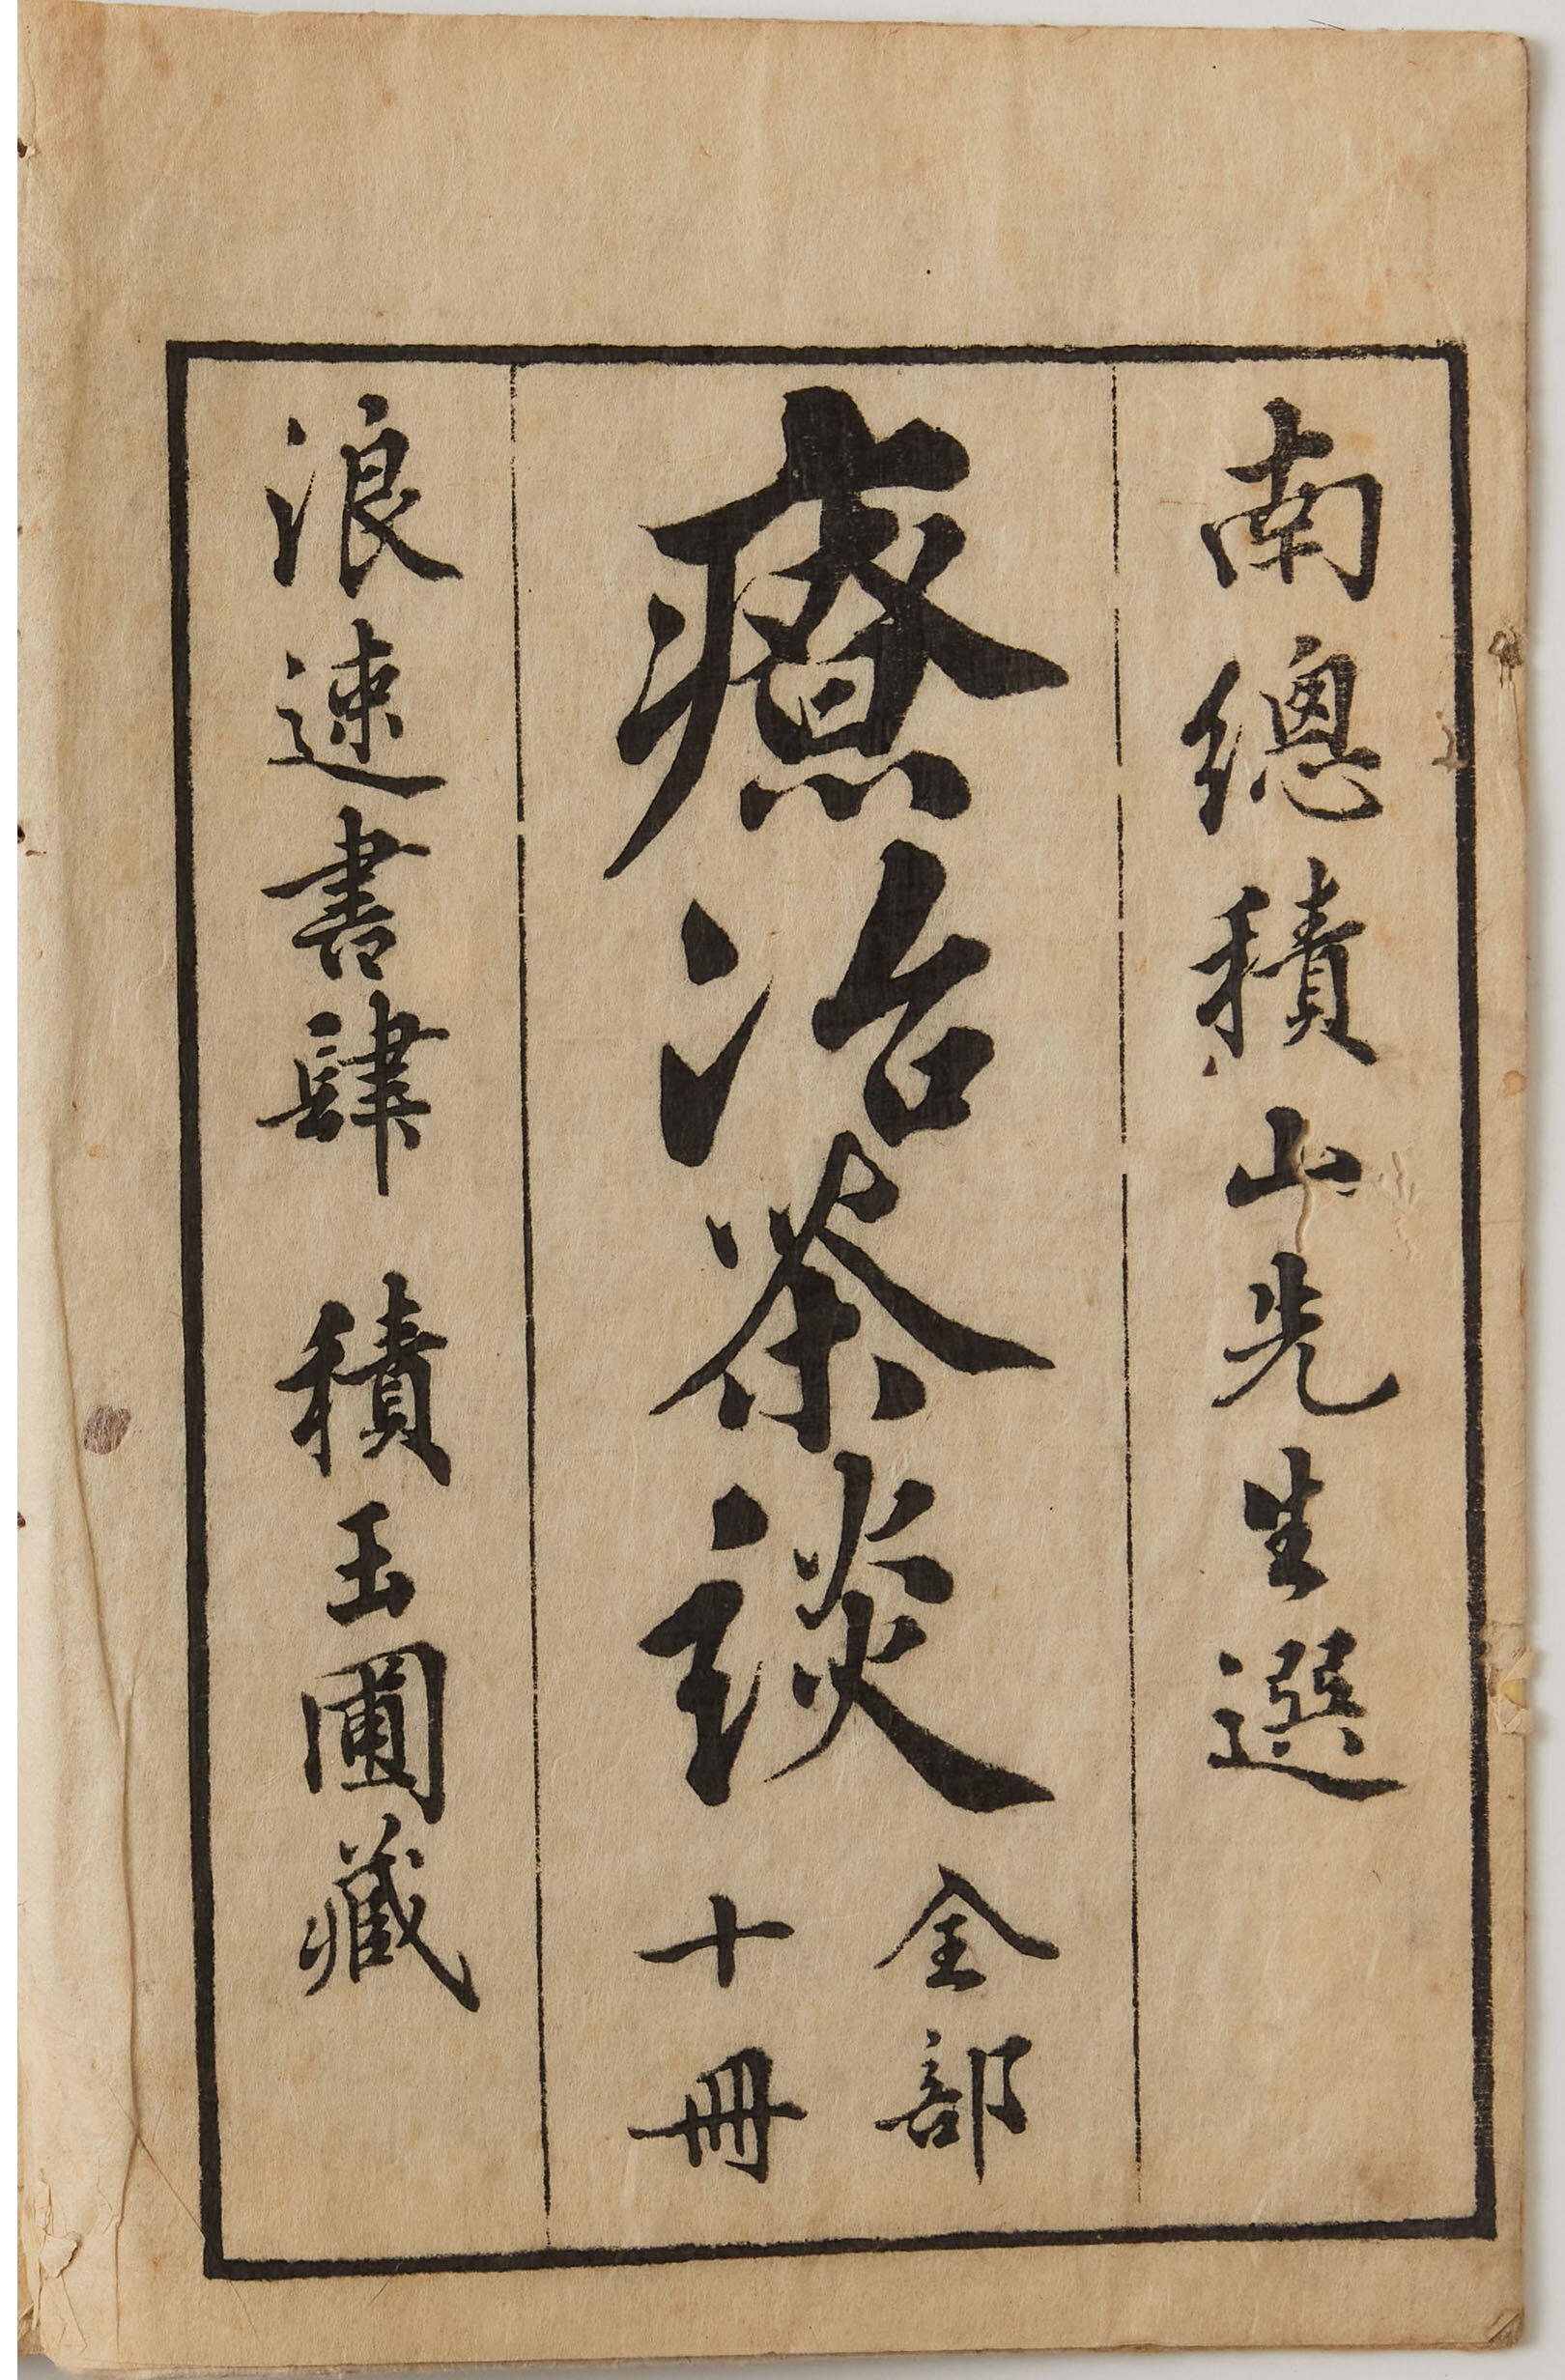 南總積山先生選
療治茶談
全部
十冊
浪速書肆 積玉圃藏